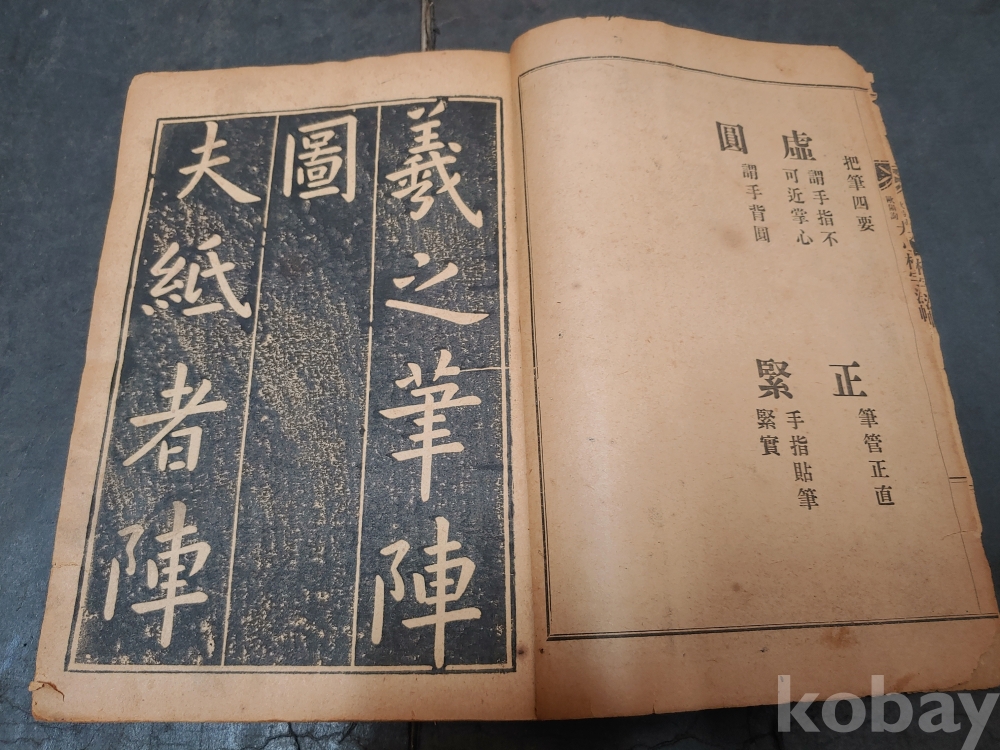 把筆四要
虛
謂手指不
可近掌心
圓
謂手背圓
正
筆管正直
緊
手指貼筆
緊實
羲之筆陣
圖
夫紙者陣
kobay